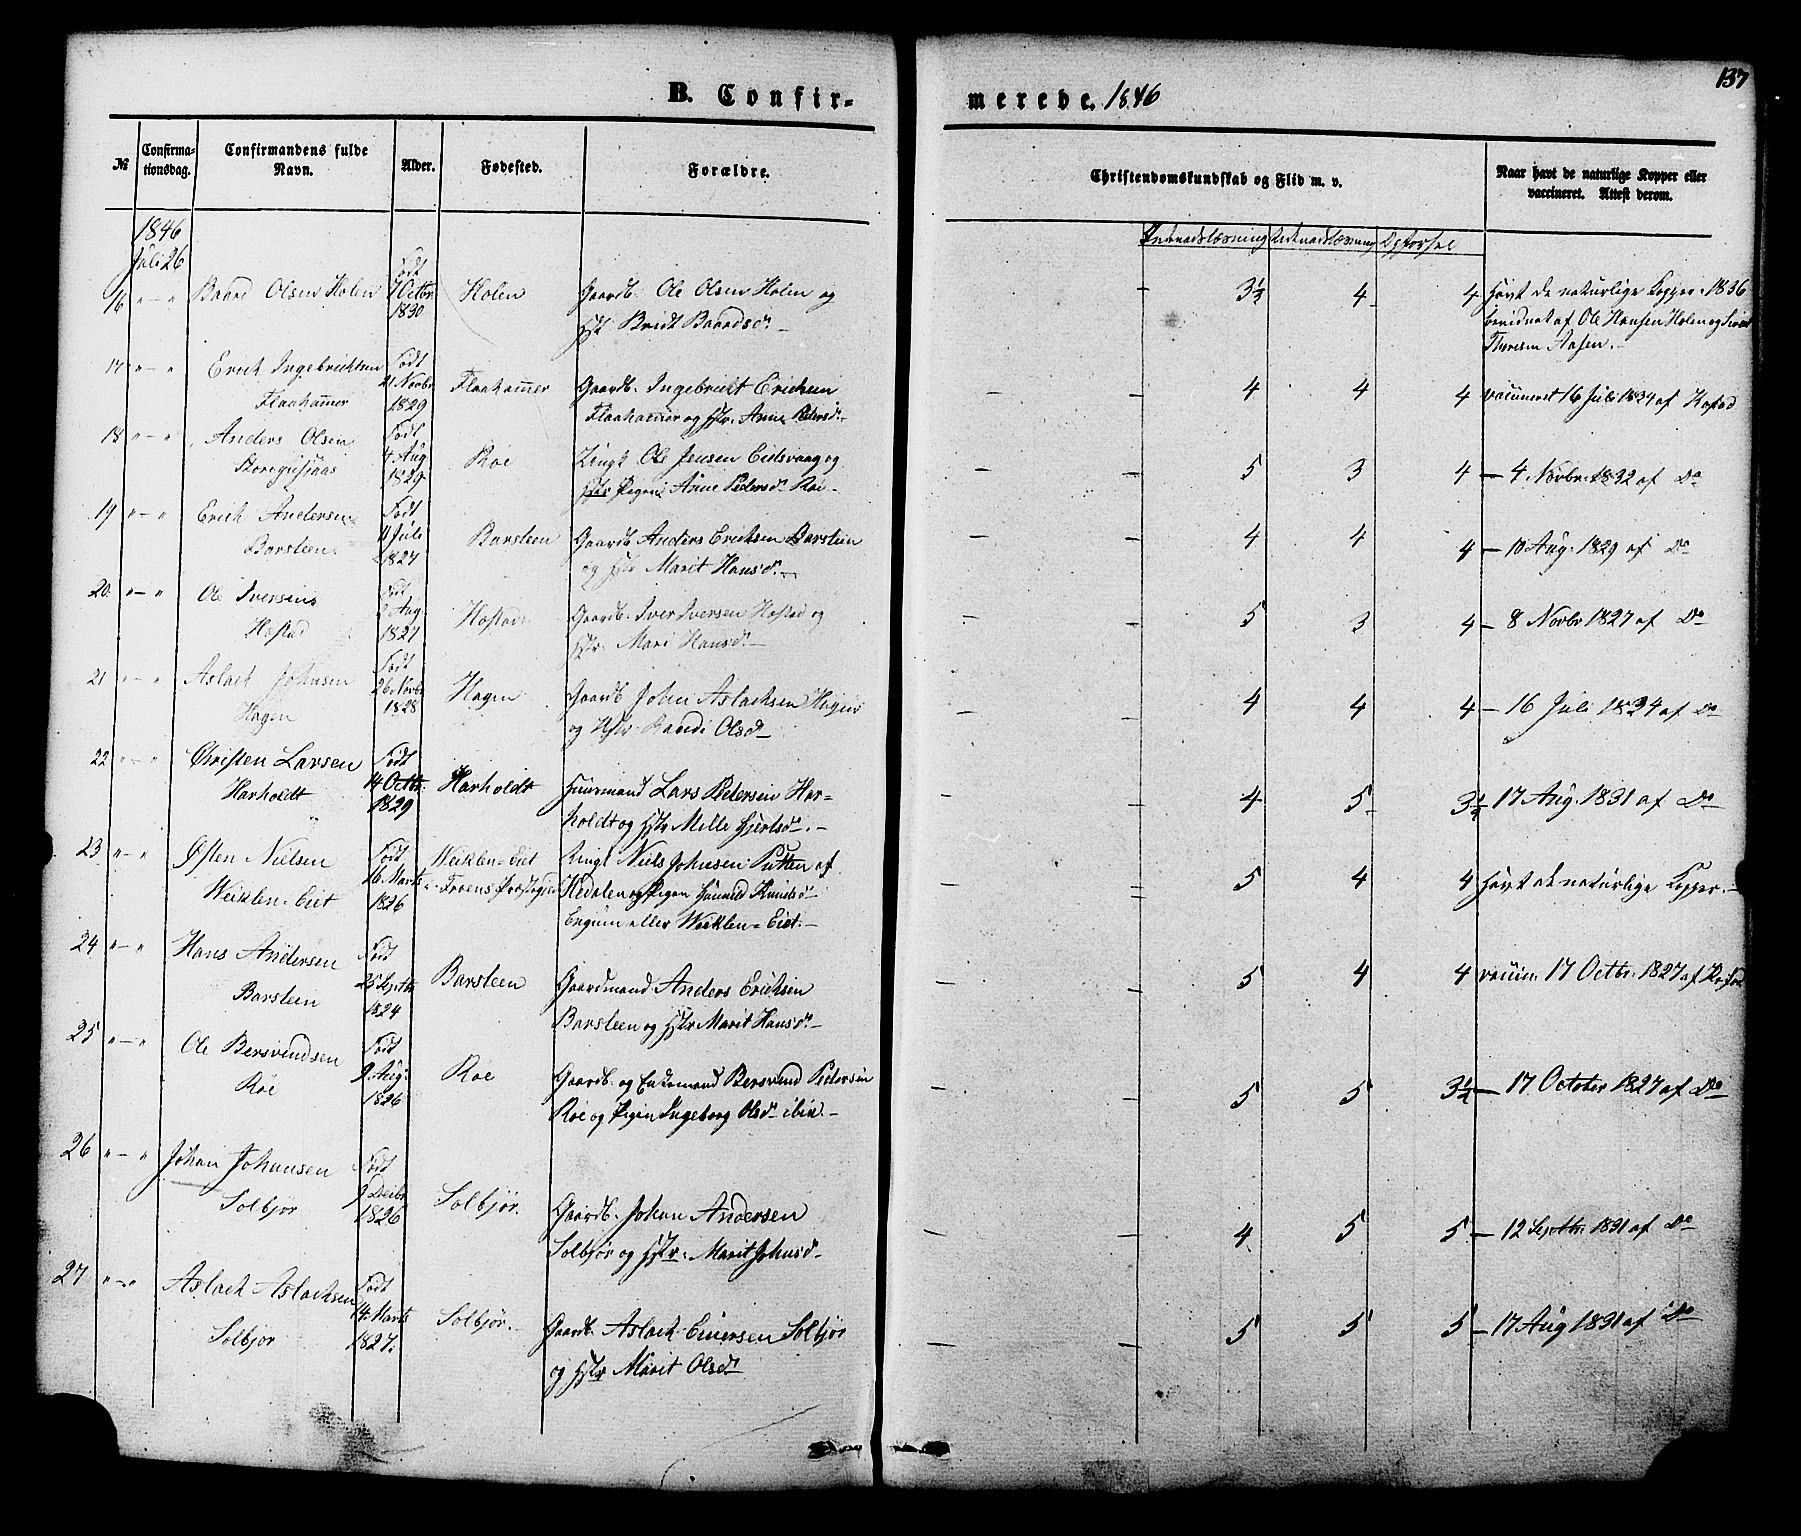 137
B. Confir- merede. 1846
№
Confirma-
tionsdag.
Confirmandens fulde
Navn.
Alder.
Fødested.
Forældre.
Christendomskundskab og Flid m. v.
Naar havt de naturlige Kopper eller
vaccineret. Attest derom.
1846
Juli 26
Indenadslæsning Udenadslæsning Opførsel
16 " — " Baard Olsen Holen Født 7 Octbr. 1830 Holen Gaardb. Ole Olsen Holen og
Hstr Bridt Baardsdr. —
3½ 4 4 havt de naturlige Kopper 1836
bevidnet af Ole Hansen Holen og
Aasen. —
17 " — " Erich Ingebrichtsen
Flaahammer Født 21 Novbr 1829 Flaahammer Gaardb. Ingebricht Erichsen
Flaahammer og Hstr. Anne Pedersdr. —
4 4 4 vaccineret 16 Juli 1834 af Hostad
18 " — " Anders Olsen
Født 4 Aug 1829 Roe Ungk. Ole Jensen Eidsvaag og
Pigen Anne Pedersdr Roe —
5 3 4 — 4 Novbr. 1832 af Do
19 " — " Erich Andersen
Barsteen Født 11 Juli 1827 Barsteen Gaardb. Anders Erichsen Barsteen
og Hstr Marit Hansdr. —
4 4 4 — 10 Aug. 1829 af Do
20. " — " Ole Iversen
Hostad Født Aug. 1827 Hostad Gaardb. Iver Iversen Hostad og
Hstr. Mari Hansdr. —
5 3 4 — 8 Novbr 1827 af Do
21 " — " Aslach Johnsen
Hagen Født 26 Novbr 1828 Hagen Gaardb. John Aslachsen Hagen
og Hstr. Randi Olsdr —
4 4 4 — 16 Juli 1834 af Do
22 " — " Christen Larsen
Harholdt Født 14 Octbr. 1829 Harholdt Huusmand Lars Pedersen Har-
holdt og Hstr Mille Hjertsdr. —
4 5 3½ — 17 Aug. 1831 af Do
23 " — " Østen Nielsen
Weiklen-Eiet Født 16 Marts 1826 Weiklen-Eiet
Froens Præstegjen Ungk. Niels Johnsen Putten af
Hedalen og Pigen Gunnild Knudsdr
eller Weiklen-Eiet. —
5 4 4 havt de naturlige Kopper. —
24 " — " Hans Andersen
Barsteen Født 25 Septbr 1824 Barsteen Gaardmand Anders Erichsen
Barsteen og Hstr Marit Hansdr. —
5 4 4 vaccin. 17 Octbr. 1827 af Hostad
25 " — " Ole Bersvendsen
Roe Født 9 Aug. 1826 Roe Gaardb. og Enkemand Bersvend Pedersen
Roe og Pigen Ingeborg Olsdr ibid —
5 5 3½ — 17 October 1827 af Do
26 " — " Johan Johansen
Solbjør Født 9 Decbr 1826 Solbjør. Gaardb. Johan Andersen
Solbjør og Hstr. Marit Johnsdr —
4 5 5 — 12 Septbr. 1831 af Do
27 " — " Aslach Aslachsen
Solbjør Født 14 Marts 1827. Solbjør. Gaardb. Aslach Eiversen Solbjør
og Hstr Marit Olsdr
5 5 5 — 17 Aug 1831 af Do